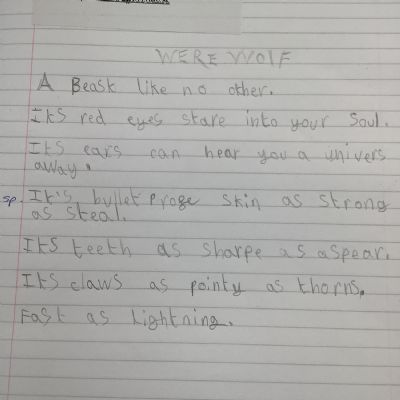 WERE WOLF
A Beast like no other.
Its red eyes stare into your Soul.
Its ears can hear you a univers
away.
sp. It's bullet profe skin as strong
as steal.
Its teeth as sharpe as aspear.
Its claws as pointy as thorns.
Fast as lightning.